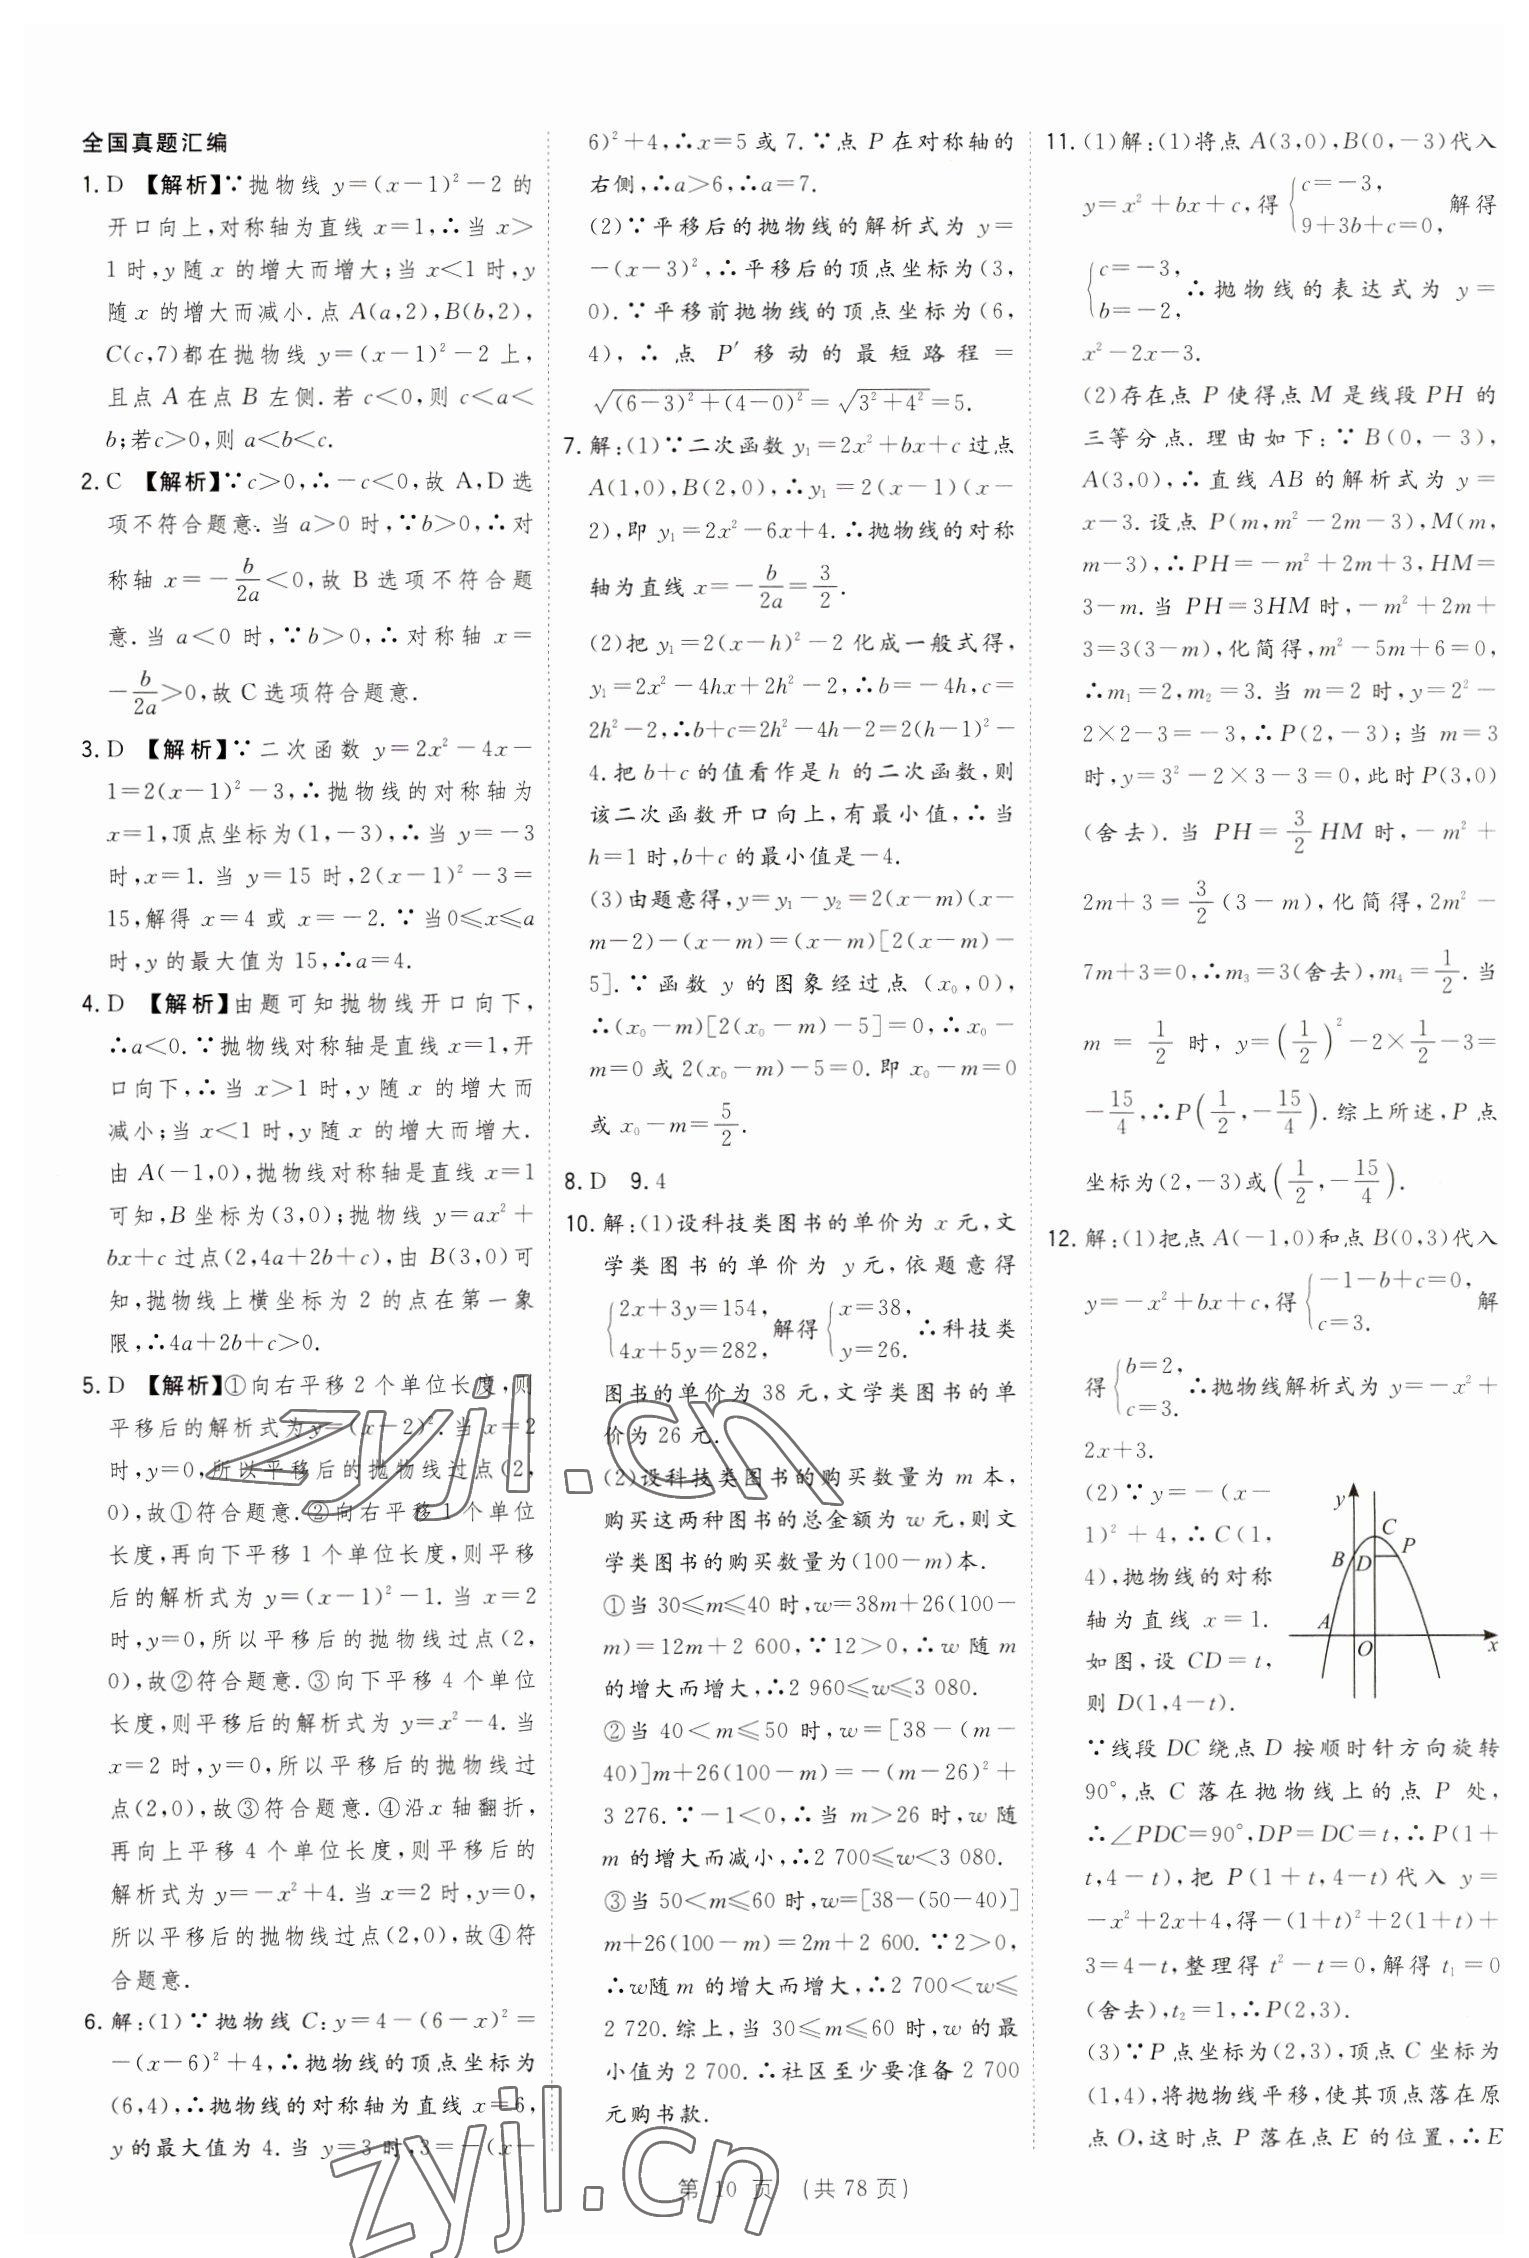 全国真题汇编
1. D 【解析】∵抛物线 y=(x-1)²-2 的
开口向上,对称轴为直线 x=1,∴当 x>
1 时,y 随 x 的增大而增大;当 x<1 时,y
随 x 的增大而减小.点 A(a,2),B(b,2),
C(c,7)都在抛物线 y=(x-1)²-2 上,
且点 A 在点 B 左侧.若 c<0,则 c<a<
b;若c>0,则 a<b<c.
2. C 【解析】∵c>0,∴-c<0,故 A,D 选
项不符合题意.当 a>0 时,∵b>0,∴对
称轴 x=-b/2a<0,故 B 选项不符合题
意.当 a<0 时,∵b>0,∴对称轴 x=
-b/2a>0,故 C 选项符合题意.
3. D 【解析】∵二次函数 y=2x²-4x-
1=2(x-1)²-3,∴抛物线的对称轴为
x=1,顶点坐标为(1,-3),∴当 y=-3
时,x=1.当 y=15 时,2(x-1)²-3=
15,解得 x=4 或 x=-2.∵当0≤x≤a
时,y 的最大值为 15,∴a=4.
4. D 【解析】由题可知抛物线开口向下,
∴a<0.∵抛物线对称轴是直线 x=1,开
口向下,∴当 x>1 时,y 随 x 的增大而
减小;当 x<1 时,y 随 x 的增大而增大.
由 A(-1,0),抛物线对称轴是直线 x=1
可知,B 坐标为(3,0);抛物线 y=ax²+
bx+c 过点(2,4a+2b+c),由 B(3,0)可
知,抛物线上横坐标为 2 的点在第一象
限,∴4a+2b+c>0.
5. D 【解析】①向右平移 2 个单位长度,则
平移后的解析式为y=(x-2)².当 x=2
时,y=0,所以平移后的抛物线过点(2,
0),故①符合题意.②向右平移 1 个单位
长度,再向下平移 1 个单位长度,则平移
后的解析式为 y=(x-1)²-1.当 x=2
时,y=0,所以平移后的抛物线过点(2,
0),故②符合题意.③向下平移 4 个单位
长度,则平移后的解析式为 y=x²-4.当
x=2 时,y=0,所以平移后的抛物线过
点(2,0),故③符合题意.④沿x 轴翻折,
再向上平移 4 个单位长度,则平移后的
解析式为 y=-x²+4.当 x=2 时,y=0,
所以平移后的抛物线过点(2,0),故④符
合题意.
6. 解:(1)∵抛物线 C:y=4-(6-x)²=
-(x-6)²+4,∴抛物线的顶点坐标为
(6,4),∴抛物线的对称轴为直线 x=6,
y 的最大值为 4.当 y=3 时,3=-(x-
6)²+4,∴x=5 或 7.∵点 P 在对称轴的
右侧,∴a>6,∴a=7.
(2)∵平移后的抛物线的解析式为 y=
-(x-3)²,∴平移后的顶点坐标为(3,
0).∵平移前抛物线的顶点坐标为(6,
4),∴点 P′移动的最短路程=
√((6-3)²+(4-0)²)=√(3²+4²)=5.
7. 解:(1)∵二次函数 y₁=2x²+bx+c 过点
A(1,0),B(2,0),∴y₁=2(x-1)(x-
2),即 y₁=2x²-6x+4.∴抛物线的对称
轴为直线 x=-b/2a=3/2.
(2)把 y₁=2(x-h)²-2 化成一般式得,
y₁=2x²-4hx+2h²-2,∴b=-4h,c=
2h²-2,∴b+c=2h²-4h-2=2(h-1)²-
4.把 b+c 的值看作是 h 的二次函数,则
该二次函数开口向上,有最小值,∴当
h=1 时,b+c 的最小值是-4.
(3)由题意得,y=y₁-y₂=2(x-m)(x-
m-2)-(x-m)=(x-m)[2(x-m)-
5].∵函数 y 的图象经过点(x₀,0),
∴(x₀-m)[2(x₀-m)-5]=0,∴x₀-
m=0 或 2(x₀-m)-5=0.即 x₀-m=0
或 x₀-m=5/2.
8. D 9. 4
10. 解:(1)设科技类图书的单价为 x 元,文
学类图书的单价为 y元,依题意得
{2x+3y=154, 4x+5y=282, 解得{x=38, y=26. ∴科技类
图书的单价为 38 元,文学类图书的单
价为 26 元.
(2)设科技类图书的购买数量为 m 本,
购买这两种图书的总金额为 w 元,则文
学类图书的购买数量为(100-m)本.
①当 30≤m≤40 时,w=38m+26(100-
m)=12m+2 600,∵12>0,∴w 随 m
的增大而增大,∴2 960≤w≤3 080.
②当 40<m≤50 时,w=[38-(m-
40)]m+26(100-m)=-(m-26)²+
3 276.∵-1<0,∴当 m>26 时,w 随
m 的增大而减小,∴2 700≤w<3 080.
③当50<m≤60 时,w=[38-(50-40)]
m+26(100-m)=2m+2 600.∵2>0,
∴w随 m 的增大而增大,∴2 700<w≤
2 720.综上,当 30≤m≤60 时,w 的最
小值为 2 700.∴社区至少要准备 2 700
元购书款.
11. (1)解:(1)将点 A(3,0),B(0,-3)代入
y=x²+bx+c,得{c=-3, 9+3b+c=0, 解得
{c=-3, b=-2, ∴抛物线的表达式为 y=
x²-2x-3.
(2)存在点 P 使得点 M 是线段 PH 的
三等分点.理由如下:∵B(0,-3),
A(3,0),∴直线 AB 的解析式为 y=
x-3.设点 P(m,m²-2m-3),M(m,
m-3),∴PH=-m²+2m+3,HM=
3-m.当 PH=3HM 时,-m²+2m+
3=3(3-m),化简得,m²-5m+6=0,
∴m₁=2,m₂=3.当 m=2 时,y=2²-
2×2-3=-3,∴P(2,-3);当 m=3
时,y=3²-2×3-3=0,此时P(3,0)
(舍去).当 PH=3/2 HM 时,-m²+
2m+3=3/2(3-m),化简得,2m²-
7m+3=0,∴m₃=3(舍去),m₄=1/2.当
m=1/2 时,y=(1/2)²-2×1/2-3=
-15/4,∴P(1/2,-15/4).综上所述,P 点
坐标为(2,-3)或(1/2,-15/4).
12. 解:(1)把点 A(-1,0)和点 B(0,3)代入
y=-x²+bx+c,得{-1-b+c=0, c=3. 解
得{b=2, c=3. ∴抛物线解析式为 y=-x²+
2x+3.
(2)∵y=-(x-
1)²+4,∴C(1,
4),抛物线的对称
轴为直线 x=1.
如图,设 CD=t,
则 D(1,4-t).
y
C
B
D
P
A
O
x
∵线段 DC 绕点 D 按顺时针方向旋转
90°,点 C 落在抛物线上的点 P 处,
∴∠PDC=90°,DP=DC=t,∴P(1+
t,4-t),把 P(1+t,4-t)代入 y=
-x²+2x+4,得-(1+t)²+2(1+t)+
3=4-t,整理得 t²-t=0,解得 t₁=0
(舍去),t₂=1,∴P(2,3).
(3)∵P 点坐标为(2,3),顶点 C 坐标为
(1,4),将抛物线平移,使其顶点落在原
点 O,这时点 P 落在点 E 的位置,∴E
第 10 页 (共 78 页)
zyjl.cn
zyjl.cn